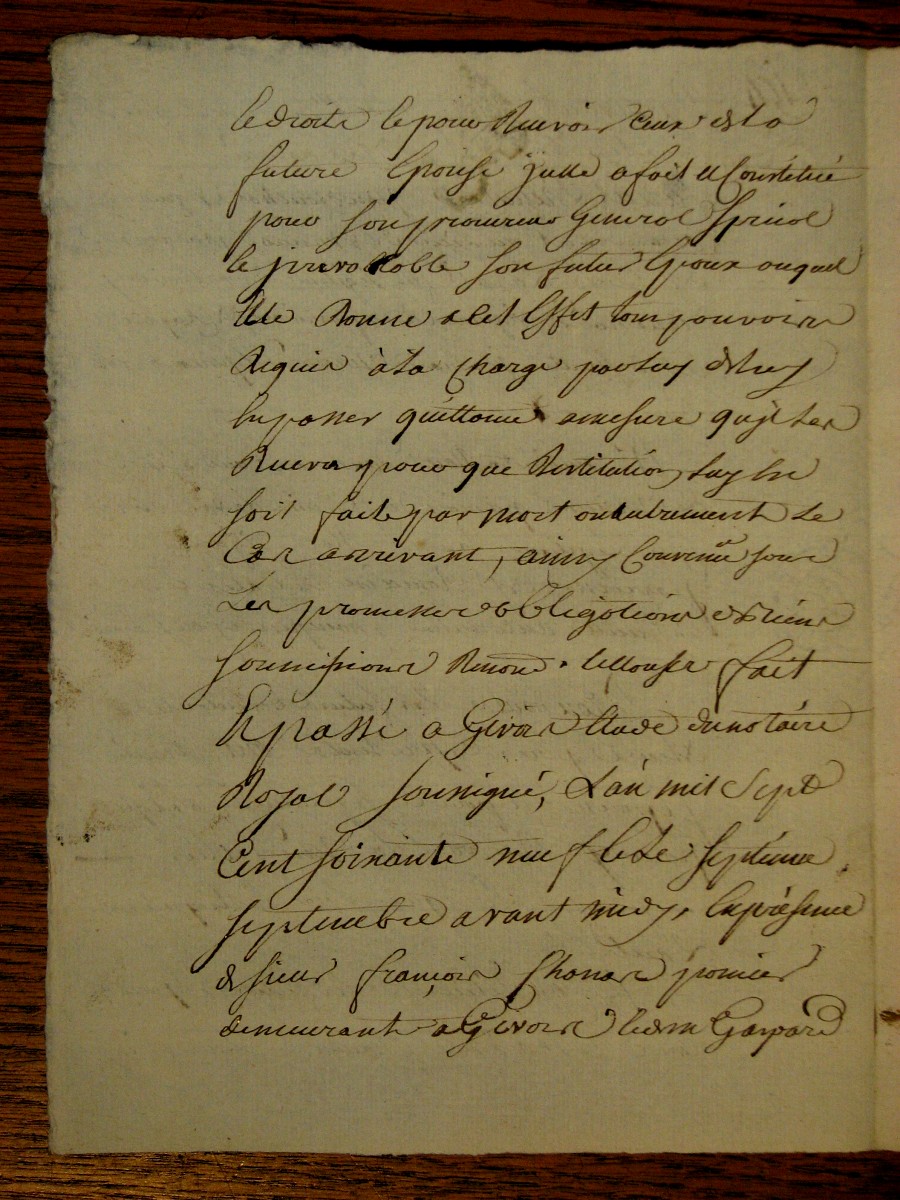 ses droits et pour recevoir ceux de la
future Epouse ycelle a fait et Constitué
pour son procureur General special
et jrrevoccable son futur Epoux auquel
elle donne a cet Effet tous pouvoirs
requis à la charge par luy de luy
En passer quittance a mesure qu'jl les
Recevra pour que Restitution luy En
soit faite par mort ou autrement le
Cas arrivant, ainsy Convenu sous
Les promesses obligations
soumissions Renon. et clauses fait
Et passé a Givors Etude du notaire
Royal soussigné, L'an mil sept
Cent soixante neuf et le septieme
septembre avant midy, En presence
de sieur françois
demeurant a Givors Gaspard